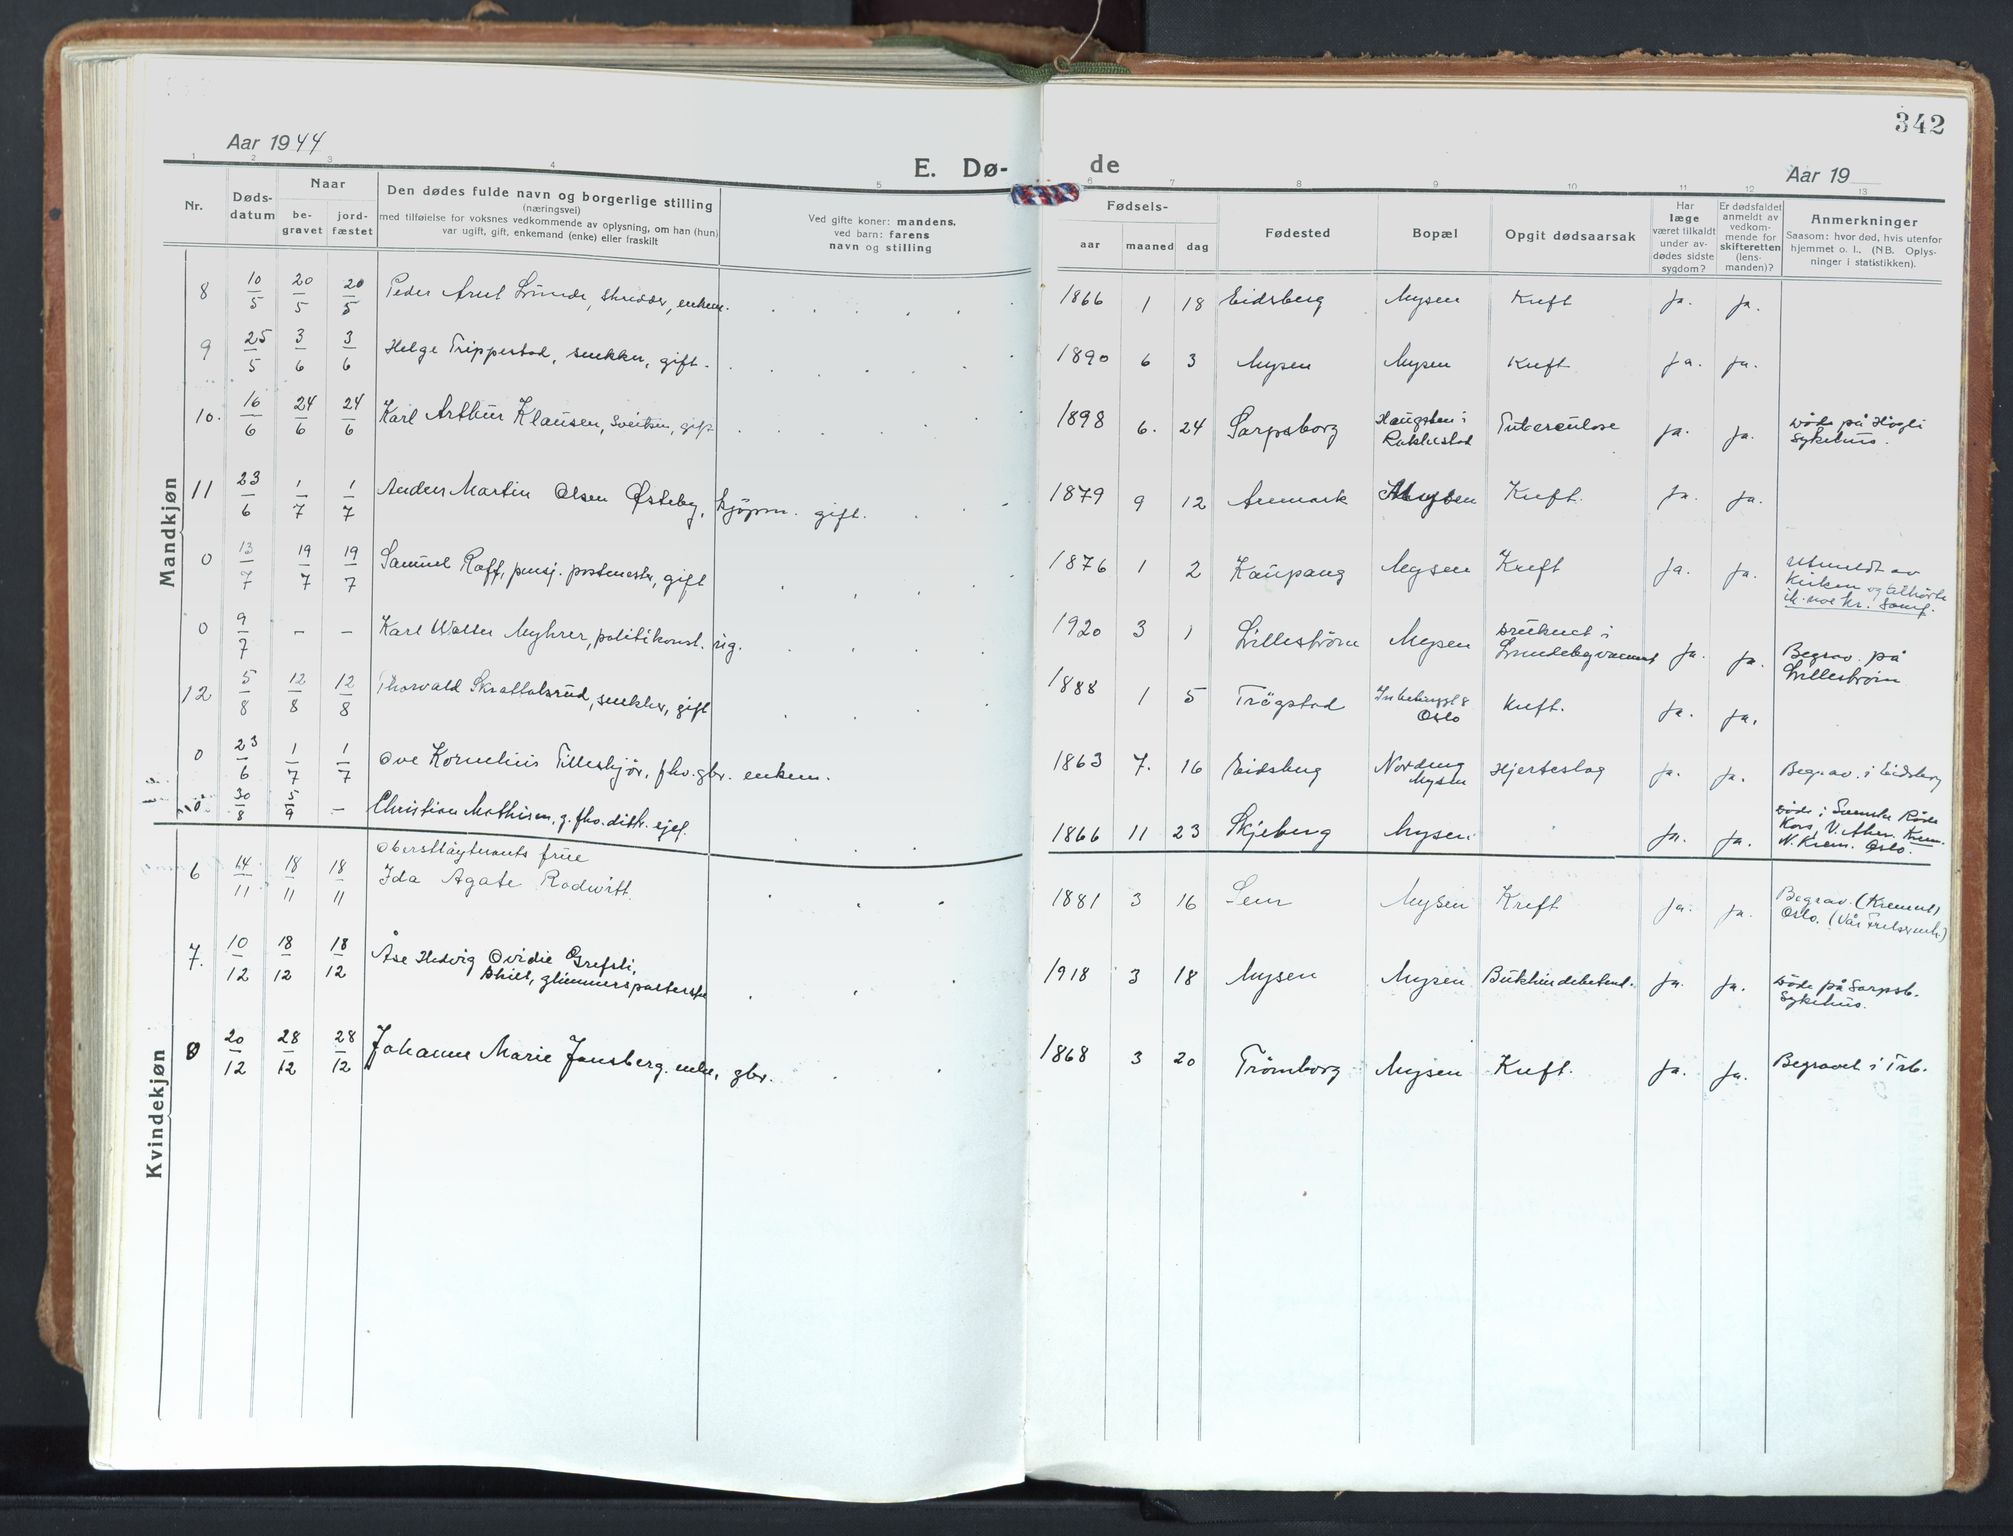 342
Aar 1944
E. Dø-
de
Aar 19
1 2 3 4 5 6 7 8 9 10 11 12 13
Nr.
Døds-
datum
Naar
be-
gravet
jord-
fæstet
Den dødes fulde navn og borgerlige stilling
(næringsvei)
med tilføielse for voksnes vedkommende av oplysning, om han (hun)
var ugift, gift, enkemand (enke) eller fraskilt
Ved gifte koner: mandens,
ved barn: farens
navn og stilling
Fødsels-
aar maaned dag
Fødested
Bopæl
Opgit dødsaarsak
Har
læge
været tilkaldt
under av-
dødes sidste
sygdom?
Er dødsfaldet
anmeldt av
vedkom-
mende for
skifteretten
(lens-
manden)?
Anmerkninger
Saasom: hvor død, hvis utenfor
hjemmet o. l., (NB. Oplys-
ninger i statistikken).
Mandkjøn
8 10/5 20/5 20/5 Peder Lunde, enkem. 1866 1 18 Eidsberg Mysen Kreft Ja. Ja.
9 25/5 3/6 3/6 Helge Trippestad, snekker, gift. 1890 6 3 Mysen Mysen Kreft Ja. Ja.
10. 16/6 24/6 24/6 Karl Arthur Klausen, sveitser, gift 1898 6. 24 Sarpsborg Haugsten i Tuberculose Ja. Ja. Døde på
Rakkestad sykehus.
11 23/6 1/7 1/7 Anders Martin Olsen Østeby, kjøpm. gift. 1879 9 12 Aremark Mysen Kreft. Ja. Ja.
0 13/7 19/7 19/7 Samuel Raff, pensj. postmester, gift 1876 1 2 Kaupang Mysen Kreft Ja. Ja. Utmeldt av
kirken og tilhørte
ik. noe kr. samf.
0 9/7 – – Karl Walter Myhrer, politikonst. ug. 1920 3 1 Lillestrøm Mysen Druknet i Ja. Ja. Begrav. på
Lundebyvannet Lillestrøm
12 5/8 12/8 12/8 Thorvald Skrattalsrud, snekker, gift 1888 1 5 Trøgstad Oslo Kreft. Ja. Ja.
0 23/6 1/7 1/7 Ove Kornelius Tilleskjør, fhv. gbr. enkem. 1863 7. 16 Eidsberg Nordeng Hjerteslag Ja. Ja. Begrav. i Eidsberg
Mysen
0 30/8 5/9 – Christian Mathisen, g. fhv. ejef. 1866 11 23 Skjeberg Mysen Ja. Ja. Døde i Svenske Røde
Kors, V. Aker. Krem.
N. Krem. Oslo.
Kvindekjøn
6 14/11 18/11 18/11 Oberstløytnants frue
Ida Agate Rodwitt. 1881 3 16 Sem Mysen Kreft Ja. Ja. Begrav. (Kremert)
Oslo. (Vår Frelsers
7. 10/12 18/12 18/12 Åse Hedvig Ovidie Grefsli, 1918 3 18 Mysen Mysen Bukhindebetend. Ja. Ja. Døde på Sarpsb.
sykehus.
8 20/12 28/12 28/12 Johanne Marie Jansberg. enke, gbr. 1868 3 20 Trømborg Mysen Kreft. Ja. Ja. Begravet i Trb.